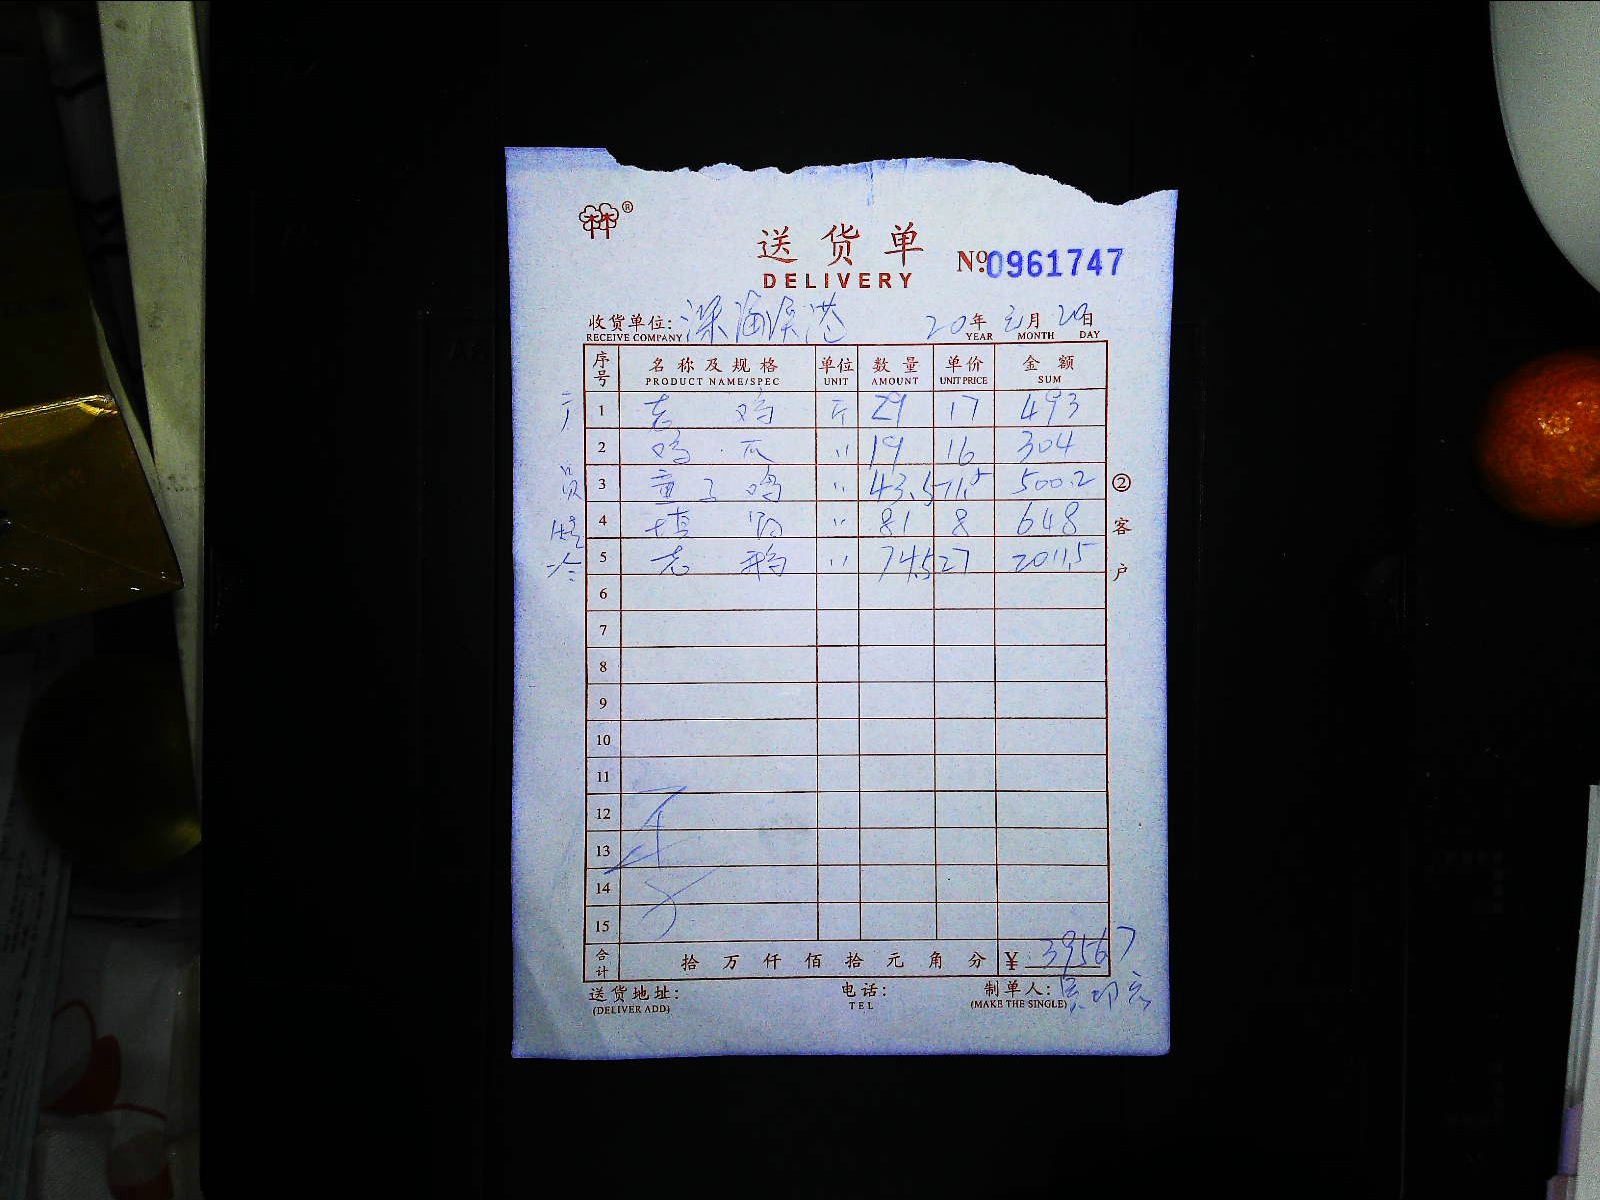 ®
送货单 No.0961747
DELIVERY
收货单位: 深海渔港 20年 元月 20日
RECEIVE COMPANY YEAR MONTH DAY
序号 名称及规格 单位 数量 单价 金额
PRODUCT NAME/SPEC UNIT AMOUNT UNIT PRICE SUM
1 老鸡 斤 29 17 493
2 鸡爪 〃 19 16 304
3 童子鸡 〃 43.5 11.5 500.2
4 〃 81 8 648
5 老鸭 〃 74.5 27 2011.5
6
7
8
9
10
11
12
13
14
15
合计 拾万仟佰拾元角分 ¥ 39567
送货地址: 电话: 制单人:
(DELIVER ADD) TEL (MAKE THE SINGLE)
②客户